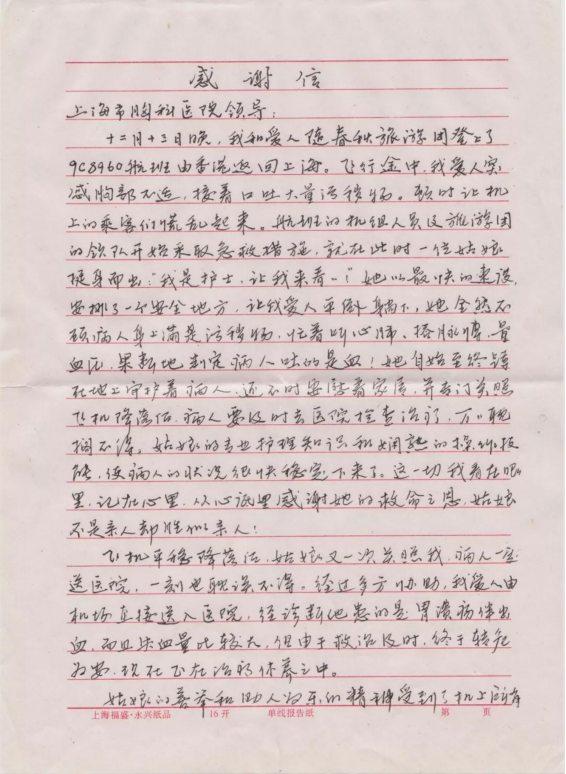 感谢信
上海市胸科医院领导:
十二月十三日晚,我和爱人随春秋旅游团登上了
9C8960航班由香港返回上海。飞行途中,我爱人突
感胸部不适,接着口吐大量污秽物。顿时让机
上的乘客们慌乱起来。航班的机组人员及旅游团
的领队开始采取急救措施,就在此时一位姑娘
挺身而出:“我是护士,让我来看一!”她以最快的速度,
安排了一个安全地方,让我爱人平卧躺下,她全然不
顾病人身上满是污秽物,忙着听心肺、搭脉搏、量
血压,果断地判定病人吐的是血!她自始至终蹲
在地上守护着病人,还不时安慰着家属,并再三关照
飞机降落后,病人要及时去医院检查治疗,万万耽
搁不得。姑娘的专业护理知识和娴熟的操作技
能,使病人的状况很快稳定下来了。这一切我看在眼
里,记在心里,从心底里感谢她的救命之恩,姑娘
不是亲人却胜似亲人!
飞机平稳降落后,姑娘又一次关照我,病人一定
送医院,一刻也耽误不得。经过多方协助,我爱人由
机场直接送入医院,经诊断他患的是胃溃疡伴出
血,而且失血量比较大,但由于救治及时,终于转危
为安,现在正在治疗休养之中。
姑娘的善举和助人为乐的精神受到了机上所有
上海福盛·永兴纸品 16开 单线报告纸 第 页